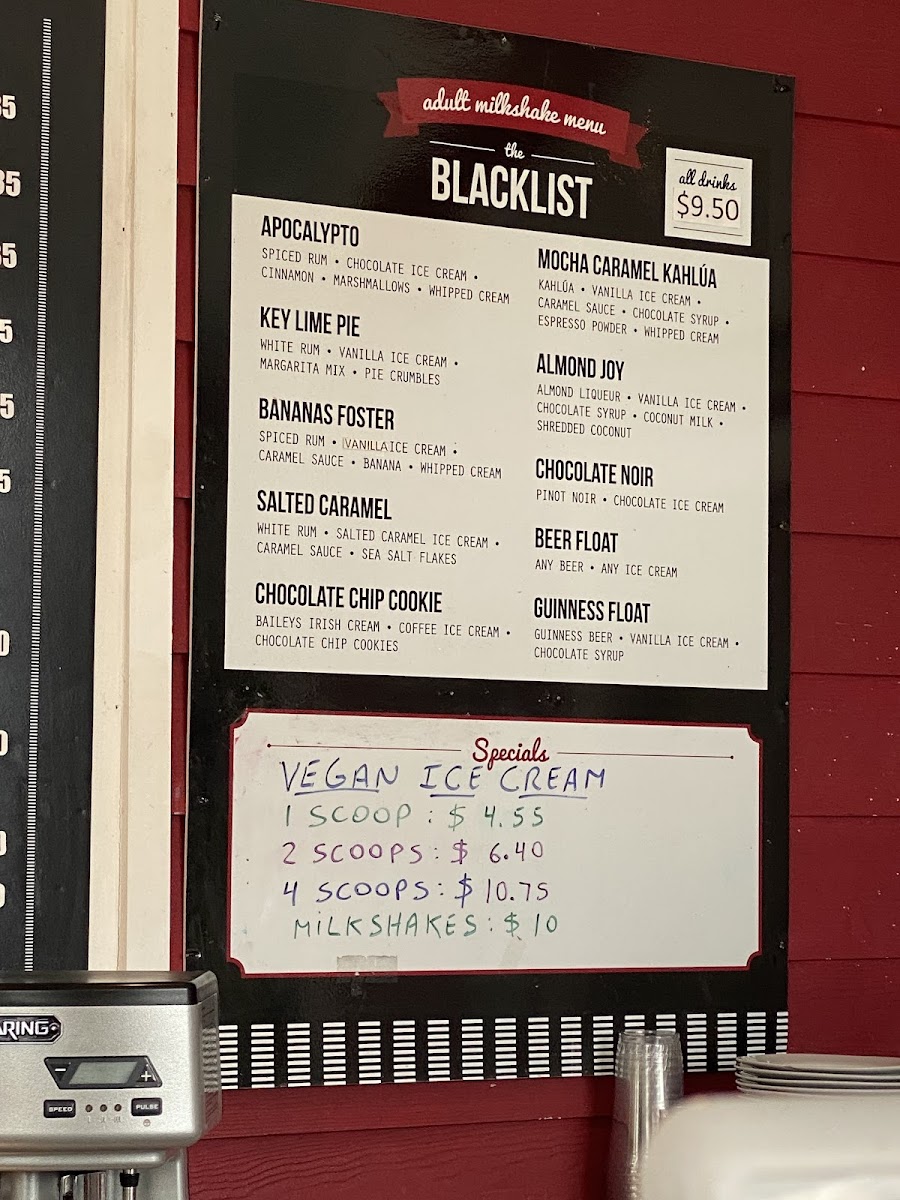 35
35
35
5
5
5
0
0
0
0
adult milkshake menu
the
BLACKLIST
all drinks
$9.50
APOCALYPTO
SPICED RUM • CHOCOLATE ICE CREAM •
CINNAMON • MARSHMALLOWS • WHIPPED CREAM
KEY LIME PIE
WHITE RUM • VANILLA ICE CREAM •
MARGARITA MIX • PIE CRUMBLES
BANANAS FOSTER
SPICED RUM • VANILLA ICE CREAM •
CARAMEL SAUCE • BANANA • WHIPPED CREAM
SALTED CARAMEL
WHITE RUM • SALTED CARAMEL ICE CREAM •
CARAMEL SAUCE • SEA SALT FLAKES
CHOCOLATE CHIP COOKIE
BAILEYS IRISH CREAM • COFFEE ICE CREAM •
CHOCOLATE CHIP COOKIES
MOCHA CARAMEL KAHLÚA
KAHLÚA • VANILLA ICE CREAM •
CARAMEL SAUCE • CHOCOLATE SYRUP •
ESPRESSO POWDER • WHIPPED CREAM
ALMOND JOY
ALMOND LIQUEUR • VANILLA ICE CREAM •
CHOCOLATE SYRUP • COCONUT MILK •
SHREDDED COCONUT
CHOCOLATE NOIR
PINOT NOIR • CHOCOLATE ICE CREAM
BEER FLOAT
ANY BEER • ANY ICE CREAM
GUINNESS FLOAT
GUINNESS BEER • VANILLA ICE CREAM •
CHOCOLATE SYRUP
Specials
VEGAN ICE CREAM
1 SCOOP : $ 4.55
2 SCOOPS : $ 6.40
4 SCOOPS : $ 10.75
MILKSHAKES : $ 10
ARING
− +
SPEED PULSE